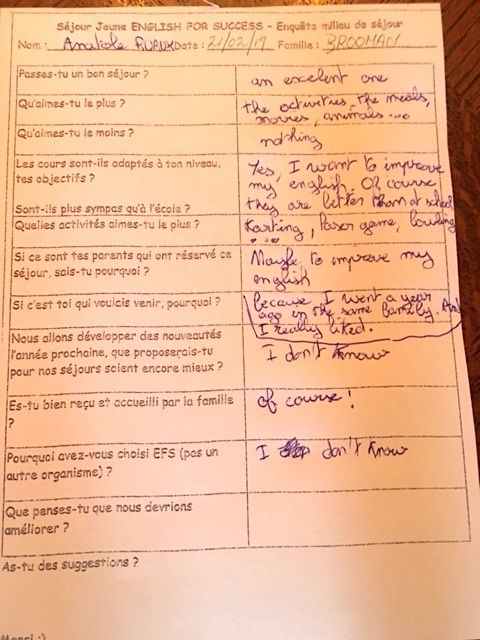 Séjour Jeune ENGLISH FOR SUCCESS - Enquête milieu de séjour
Nom : Anatole RUAUX Date : 21/02/17 Famille : BROOMAN
Passes-tu un bon séjour ? an excelent one
Qu'aimes-tu le plus ? the activities, the meals,
movies, animals ...
Qu'aimes-tu le moins ? nothing
Les cours sont-ils adaptés à ton niveau, Yes, I want to improve
tes objectifs ? my english. Of course
Sont-ils plus sympas qu'à l'école ? they are better than at school
Quelles activités aimes-tu le plus ? Karting, laser game, bowling
...
Si ce sont tes parents qui ont réservé ce Maybe to improve my
séjour, sais-tu pourquoi ? english
Si c'est toi qui voulais venir, pourquoi ? because, I went a year
ago in the same family. And
I really liked.
Nous allons développer des nouveautés
l'année prochaine, que proposerais-tu I don't know
pour nos séjours soient encore mieux ?
Es-tu bien reçu et accueilli par la famille of course !
?
Pourquoi avez-vous choisi EFS (pas un I don't know
autre organisme) ?
Que penses-tu que nous devrions
améliorer ?
As-tu des suggestions ?
Merci :)